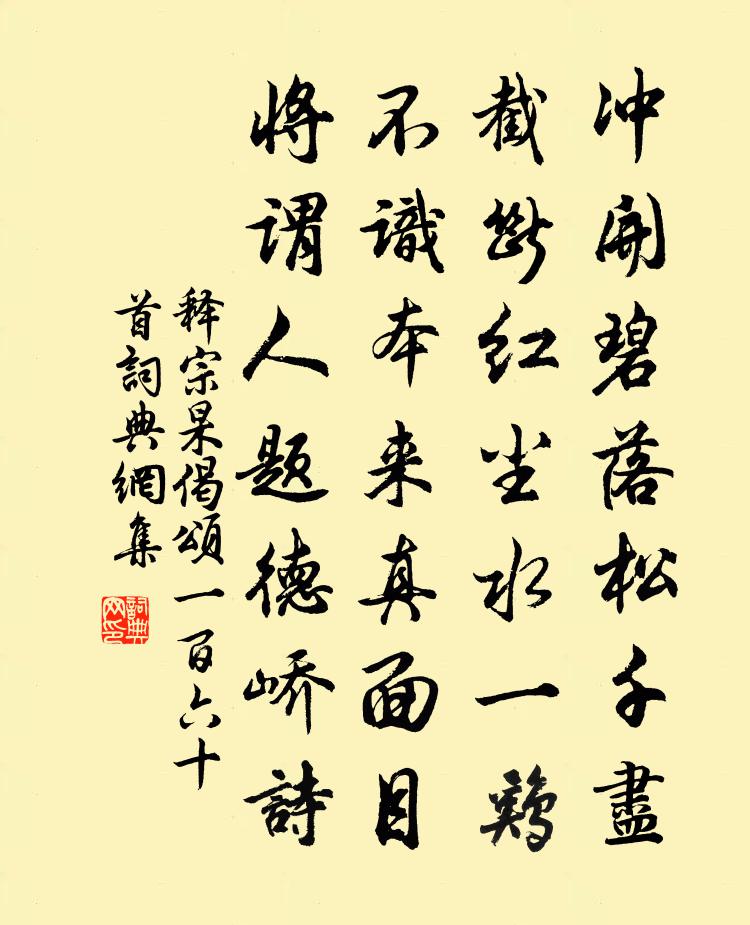 冲開碧落松千盡
截斷红尘水一鷄
不識本来真面目
将謂人题德峤詩
释宗杲偈頌一百六十
首詞典網集
詞典网印